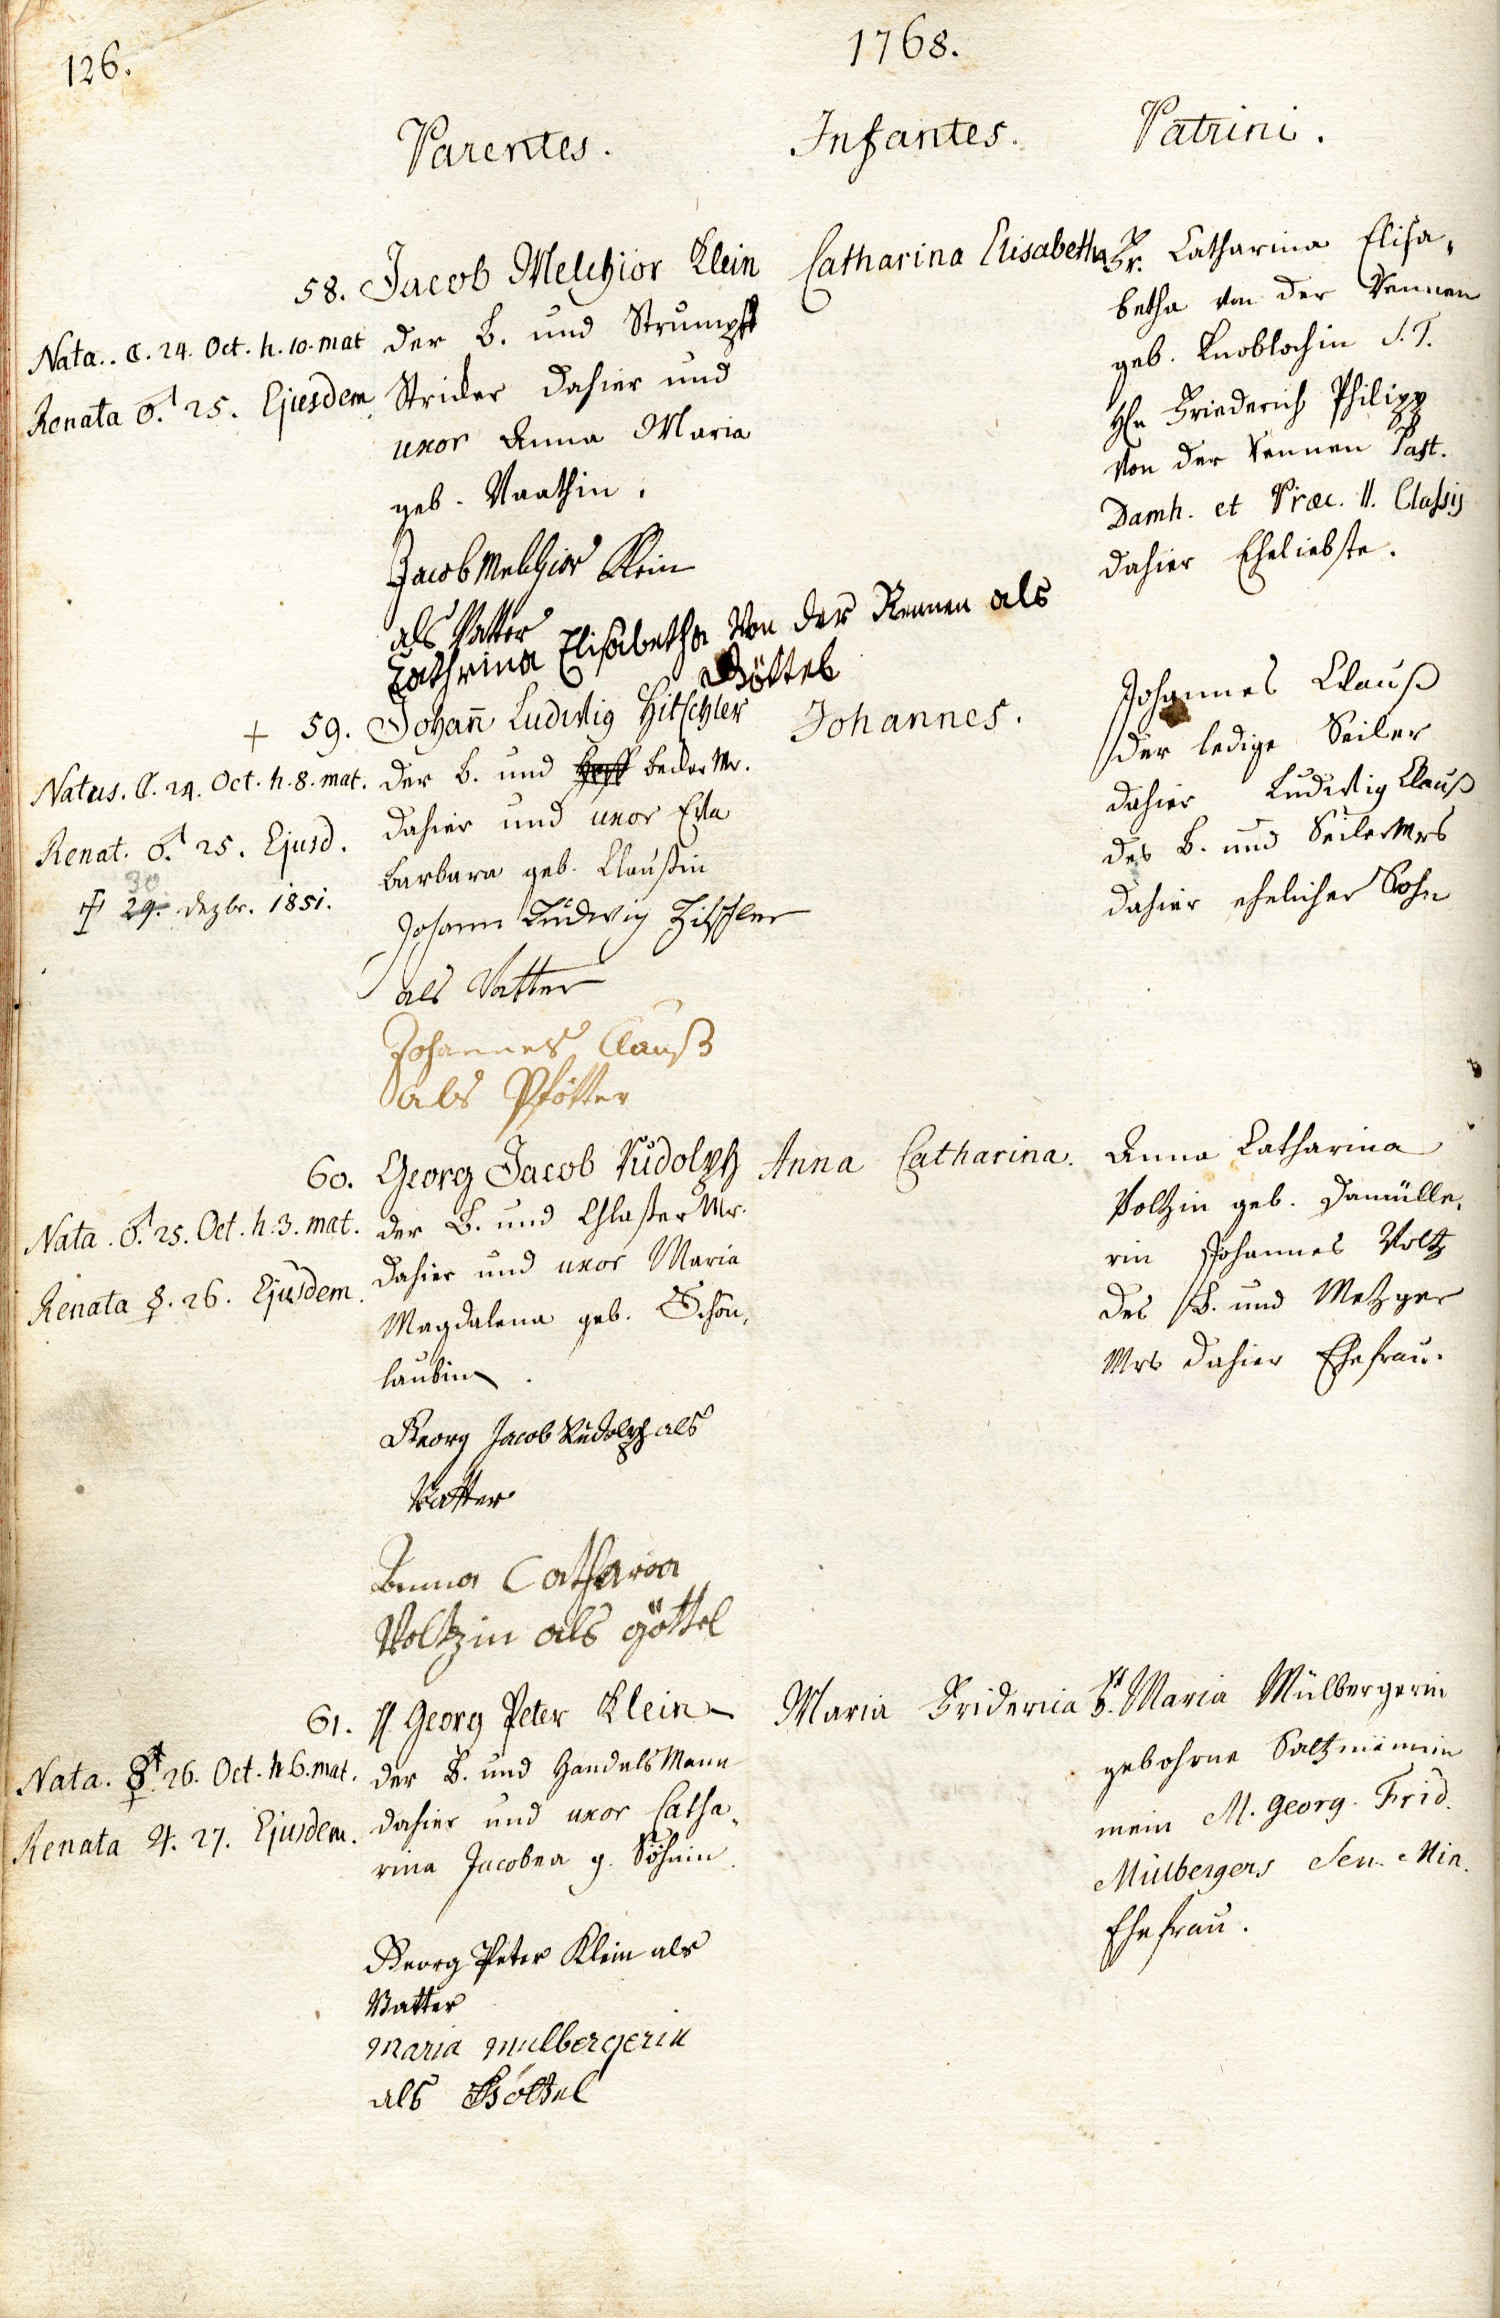 126.
1768.
Parentes.
Infantes.
Patrini.
58. Jacob Melchior Klein
der B. und Strumpff
Stricker dahier und
uxor Anna Maria
geb. Vaathin.
Nata. ☾. 24. Oct. h. 10. mat
Renata ♂. 25. Ejusdem
Catharina Elisabetha
Fr. Catharina Elisa,
betha von der Rennen
geb. Knoblochin S. T.
Hn Friederich Philipp
von der Rennen Past.
Damh. et Præc. II. Classis
dahier Eheliebste.
Jacob Melchior Klein
als Vatter
Cathrina Elisabetha Von der Rennen als
Göttel
+ 59. Johañ Ludwig Hitschler
der B. und becker Mr.
dahier und uxor Eva
barbara geb. Claußin
Natus. ☾. 24. Oct. h. 8. mat.
Renat. ♂. 25. Ejusd.
30
✝ 29. dezbr. 1851.
Johannes.
Johannes Clauß
der ledige Seiler
dahier Ludwig Clauß
des B. und Seiler Mrs
dahier ehelicher Sohn
Johann Ludwig Hitschler
als Vatter
Johannes Clauß
als Pfötter
60. Georg Jacob Rudolph
der B. und Glaßer Mr.
dahier und uxor Maria
Magdalena geb. Schön,
laubin.
Nata. ♂. 25. Oct. h. 3. mat.
Renata ☿. 26. Ejusdem.
Anna Catharina.
Anna Catharina
Voltzin geb. Damülle,
rin Johannes Voltz
des B. und Metzger
Mrs dahier Ehefrau.
Georg Jacob Rudolph als
Vatter
Anna Catharina
Voltzin als göttel
61. H. Georg Peter Klein
der B. und Handels Mann
dahier und uxor Catha,
rina Jacobea g. Söhnin.
Nata. ☿. 26. Oct. h. 6. mat.
Renata ♃. 27. Ejusdem.
Maria Fridericia
Fr. Maria Mülbergerin
gebohrne Saltzmännin
mein M. Georg. Frid.
Mülbergers Sen. Min.
Ehefrau.
Georg Peter Klein als
Vatter
Maria Mulbergerin
als Göttel